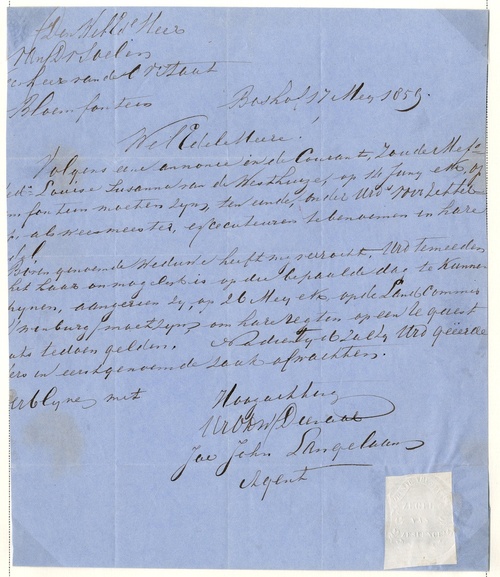 Den WelEd. Heer
van de O. V. Staat
Bloemfontein
Boshof 17 Mey 1859.
WelEdele Heere!
Volgens eene annonce in de Courant, zoude Mej
Louisa Susanna van de Westhuizen, op 14 Juny ek, op
fontein moeten zyn, ten einde onder UEd. voorzitter
als weesmeester, executeuren te benoemen in hare
Bovengenoemde Weduwe heeft my verzocht, UEd te melden
het haar onmogelyk is op die bepaalde dag te kunnen
schynen, aangezien zy, op 26 Mey ek op de Land Commis
moet zyn om hare regten op een te
te doen gelden. UEd geëerde
in eerstgenoemde zaak afwachten.
verblyve met
Hoogachting
UEd Dw Dienaar
Jac John Langelaan
Agent